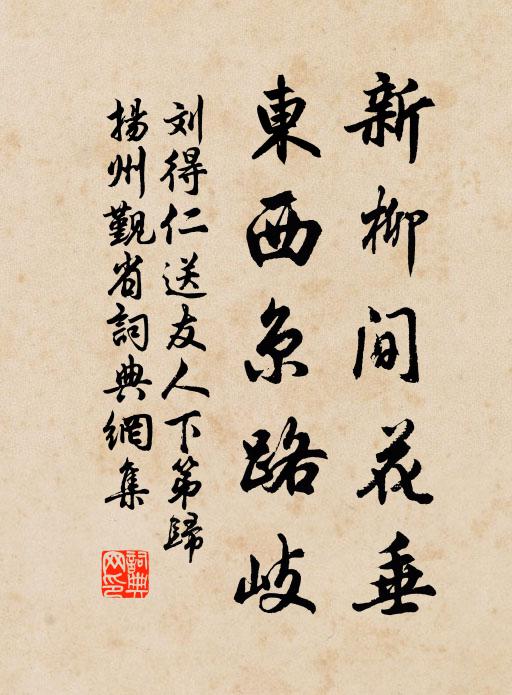 新柳间花垂
東西京路岐
刘得仁送友人下第歸
揚州覲省詞典網集
詞典网印